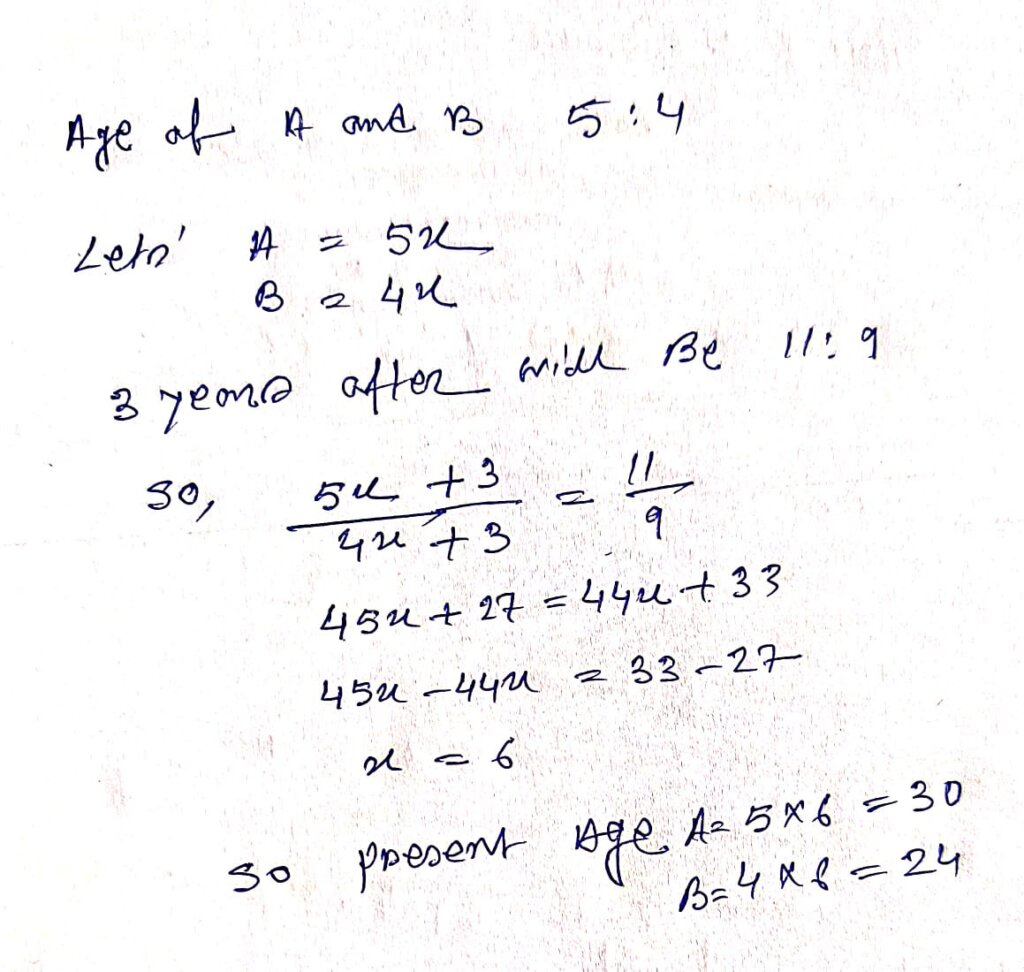 Age of A and B 5:4
Lets' A = 5x
B = 4x
3 years after will Be 11:9
So, 5x + 3 / 4x + 3 = 11 / 9
45x + 27 = 44x + 33
45x - 44x = 33 - 27
x = 6
So present Age A = 5 × 6 = 30
B = 4 × 6 = 24